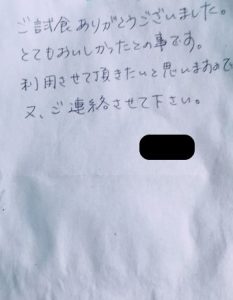 ご試食ありがとうございました。
とてもおいしかったとの事です。
利用させて頂きたいと思いますので
又、ご連絡させて下さい。